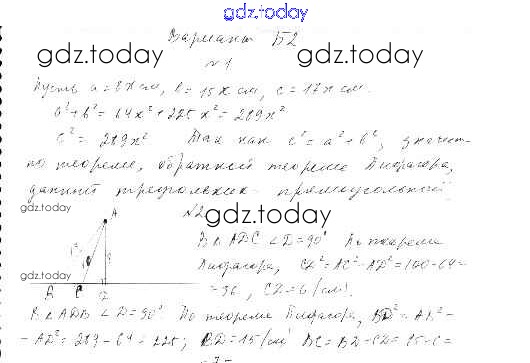 gdz.today
Вариант Б2
gdz.today gdz.today
№1
Пусть a = 8x см, b = 15x см, c = 17x см.
a² + b² = 64x² + 225x² = 289x²
c² = 289x² Так как c² = a² + b², значит-
по теореме, обратной теореме Пифагора,
данный треугольник - прямоугольный
gdz.today
№2
gdz.today
A
В △ADC ∠D = 90° По теореме
Пифагора, CD² = AC² - AD² = 100 - 64 =
= 36, CD = 6 (см).
gdz.today
B C D
В △ADB ∠D = 90° По теореме Пифагора, BD² = AB² -
- AD² = 289 - 64 = 225; BD = 15 (см) BC = BD - CD = 15 - 6 =